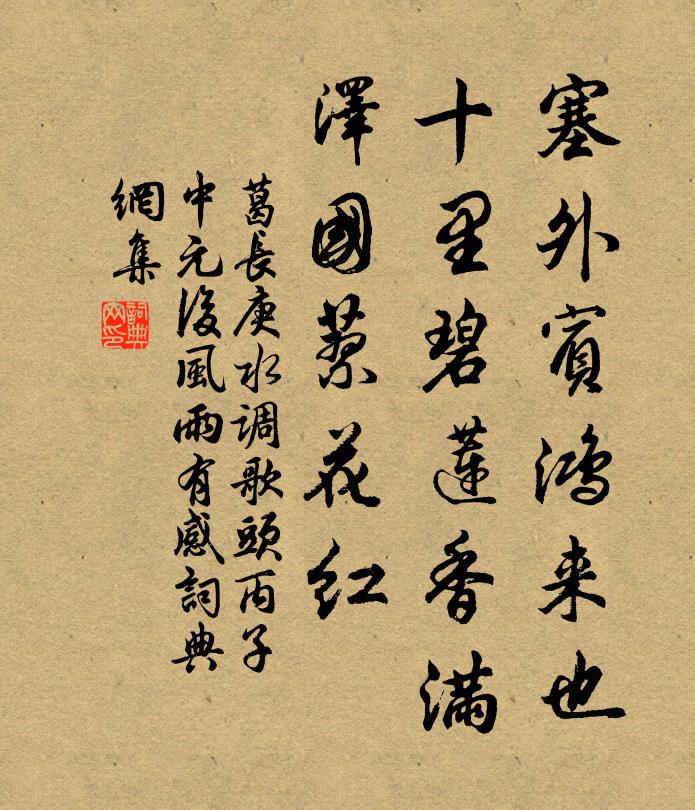 塞外賓鴻来也
十里碧蓮香滿
澤國蓼花紅
葛長庚水调歌頭丙子
中元後風雨有感詞典
網集
詞典
网印